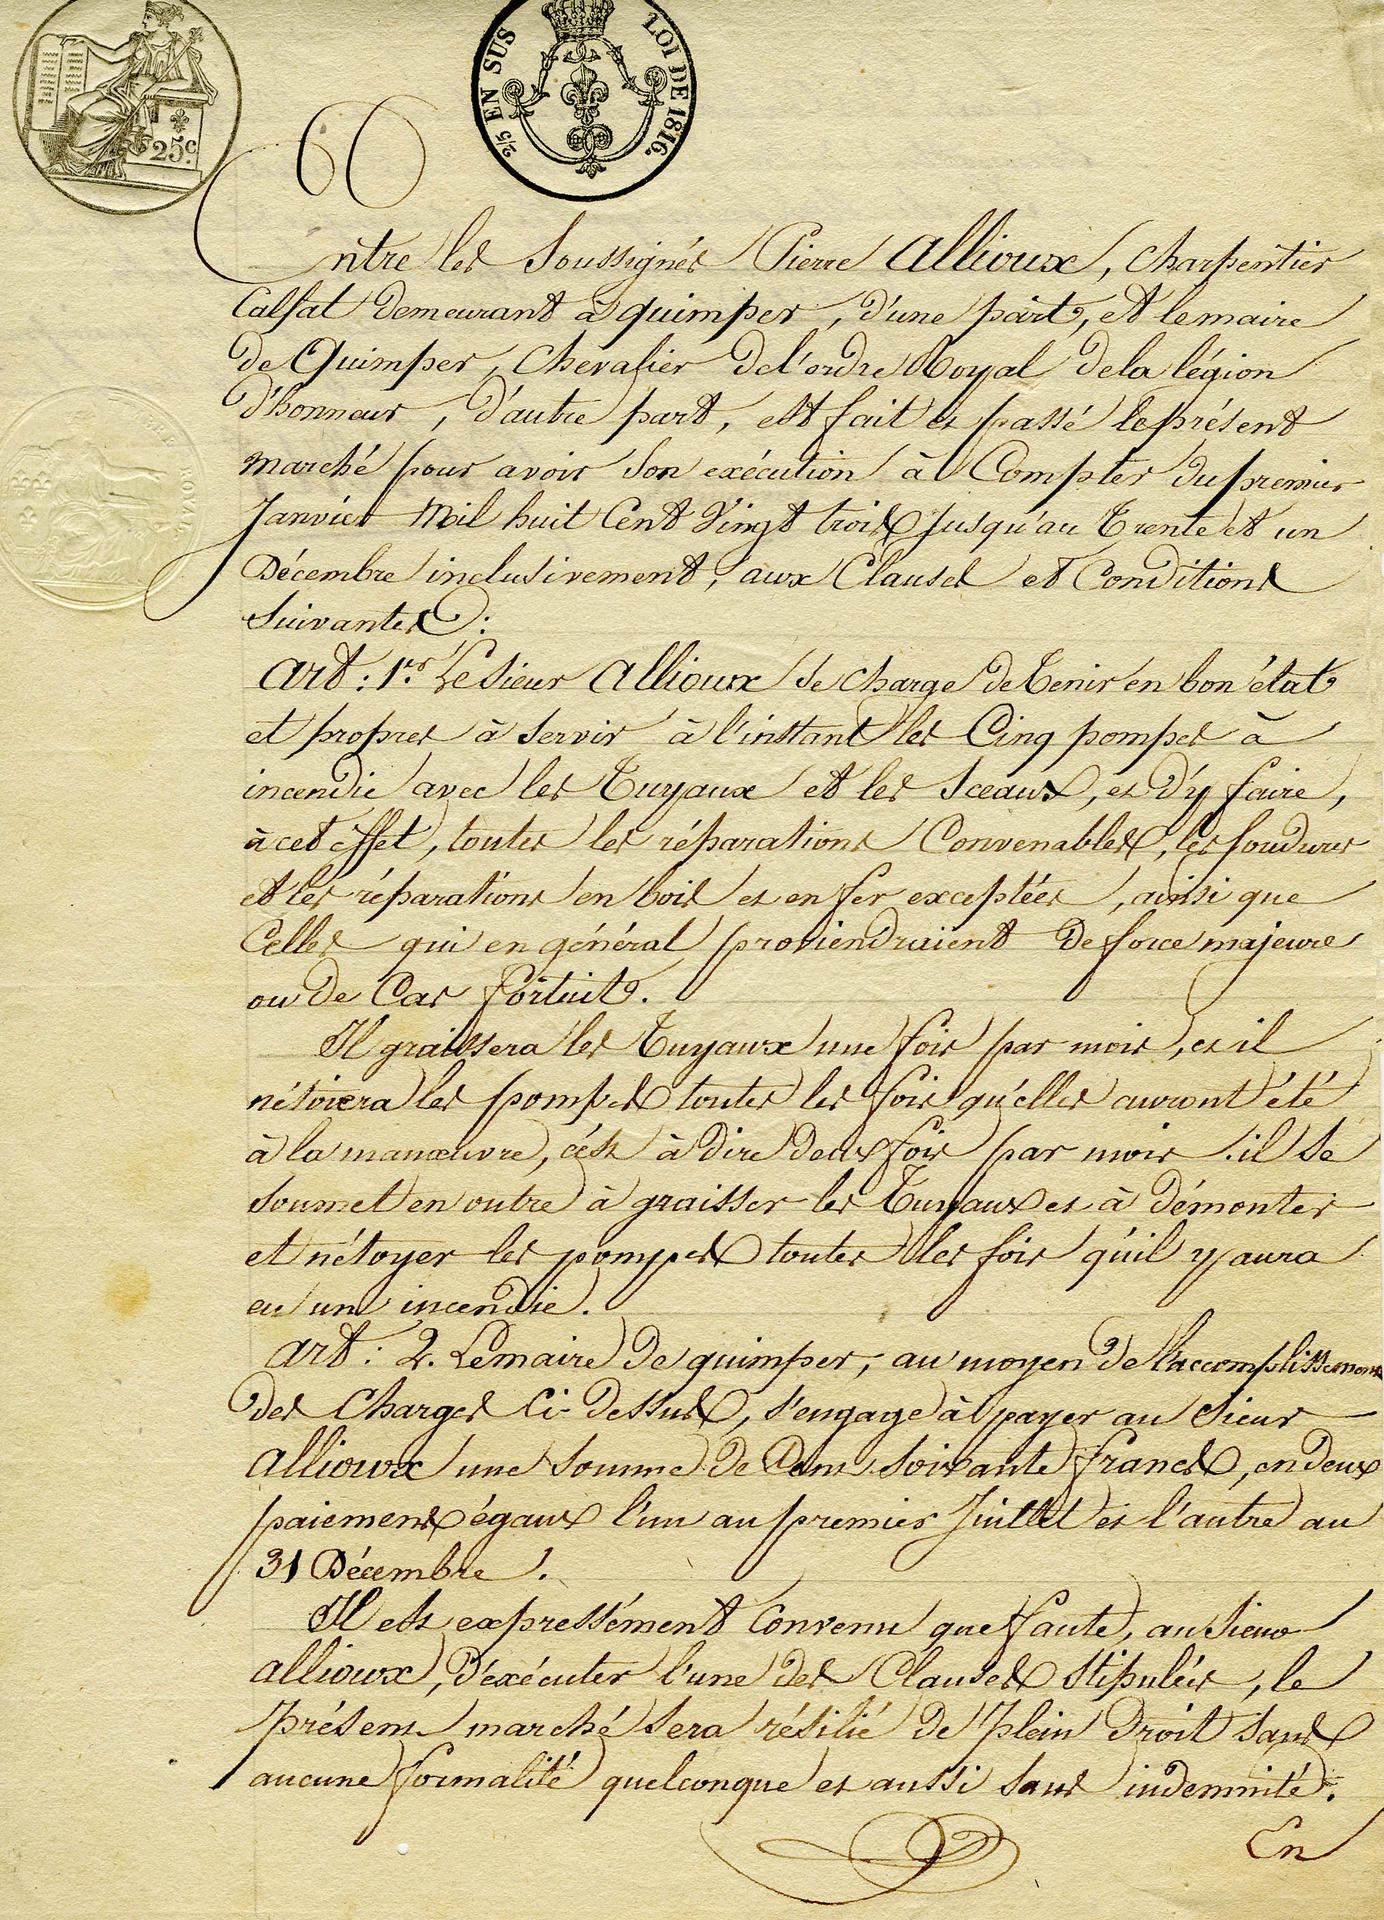 25c.
2/5 EN SUS
LOI DE 1816.
Entre les Soussignés Pierre Allioux, Charpentier
Calfat demeurant à quimper, d'une part, et le maire
de Quimper, Chevalier de l'ordre Royal de la légion
d'honneur, d'autre part, est fait et passé le présent
marché pour avoir son exécution à Compter du premier
Janvier Mil huit Cent Vingt trois jusqu'au Trente et un
Décembre inclusivement, aux Clauses et Conditions
Suivantes:
Art: 1er. Le Sieur Allioux se charge de Tenir en bon état
et propres à servir à l'instant les Cinq pompes à
incendie avec les Tuyaux et les Sceaux, et d'y faire,
à cet effet, toutes les réparations Convenables, les soudures
et les réparations en bois et en fer exceptées, ainsi que
Celles qui en général proviendraient de force majeure
ou de Cas fortuit.
Il graissera les Tuyaux une fois par mois, et il
nétoiera les pompes toutes les fois qu'elles auront été
à la manœuvre, c'ést à dire deux fois par mois. il se
soumet en outre à graisser les Tuyaux et à démonter
et nétoyer les pompes toutes les fois qu'il y aura
eu un incendie.
Art: 2. Le maire de quimper, au moyen de l'accomplissement
des Charges Ci-dessus, s'engage à payer au Sieur
Allioux une somme de Cent soixante francs, en deux
paiemens égaux l'un au premier Juillet et l'autre au
31 Décembre.
Il est expressément Convenu que faute, au Sieur
allioux, d'exécuter l'une des Clauses stipulées, le
présent marché sera résilié de plein droit sans
aucune formalité quelconque et aussi sans indemnité.
En